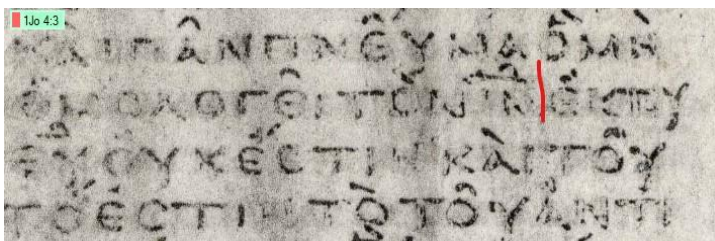 1Jo 4:3
ΚΑΙΠΑΝΠΝΕΥΜΑΟΜΗ
ΟΜΟΛΟΓΕΙΤΟΝΙ̅Ν̅ΕΚΤΟΥ
Θ̅Υ̅ΟΥΚΕϹΤΙΝΚΑΙΤΟΥ
ΤΟΕϹΤΙΝΤΟΤΟΥΑΝΤΙ